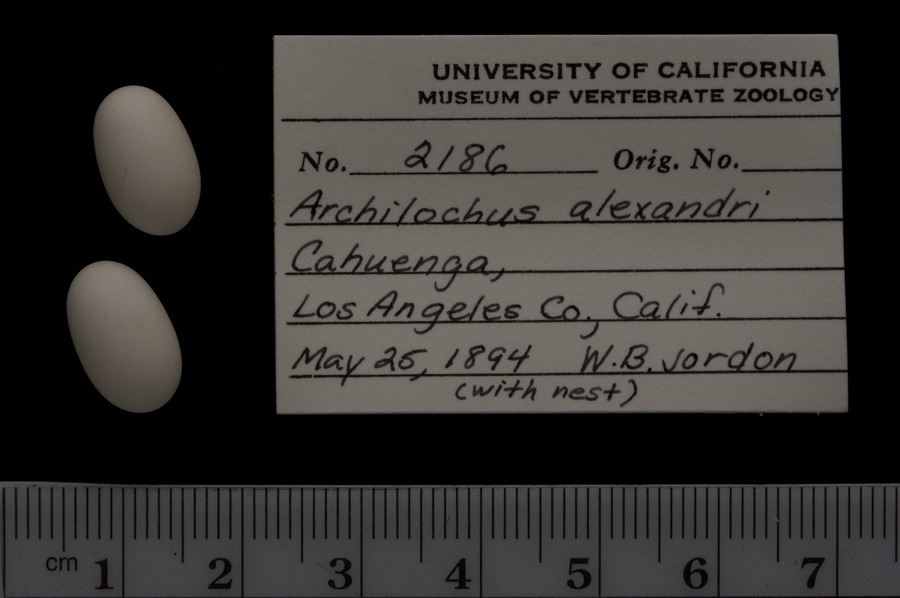 UNIVERSITY OF CALIFORNIA
MUSEUM OF VERTEBRATE ZOOLOGY
No. 2186 Orig. No.
Archilochus alexandri
Cahuenga,
Los Angeles Co., Calif.
May 25, 1894 W.B. Jordon
(with nest)
cm 1 2 3 4 5 6 7